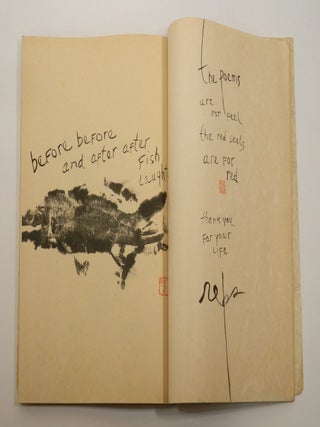 before before
and after after
fish
caught
the poems
are
for feel
the red seals
are for
red
thank you
for your
life
reps